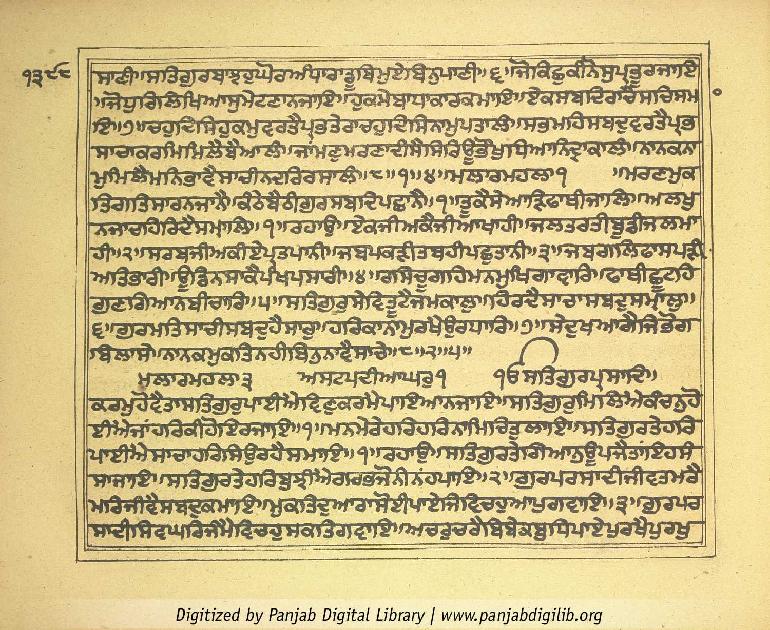 ੧੩੯੯
ਸਾਣੀ॥ਸਤਿਗੁਰਬਾਝਹੁਘੋਰਅੰਧਾਰਾਡੂਬਿਮੁਏਬਿਨੁਪਾਣੀ॥੬॥ਜੋਕਿਛੁਕੀਨੋਸੁਪ੍ਰਭੂਰਜਾਇ
॥ਜੋਧੁਰਿਲਿਖਿਆਸੁਮੇਟਣਾਨਜਾਇ॥ਹੁਕਮੇਬਾਧਾਕਾਰਕਮਾਇ॥ਏਕਸਬਦਿਰਾਚੈਸਚਿਸਮਾ
ਇ॥੭॥ਚਹੁਦਿਸਿਹੁਕਮੁਵਰਤੈਪ੍ਰਭਤੇਰਾਚਹੁਦਿਸਿਨਾਮਪਤਾਲੰ॥ਸਭਮਹਿਸਬਦੁਵਰਤੈਪ੍ਰਭ
ਸਾਚਾਕਰਮਿਮਿਲੈਬੈਆਲੰ॥ਜਾਂਮਣੁਮਰਣਾਦੀਸੈਸਿਰਿਊਭੌਖੁਧਿਆਨਿਦ੍ਰਾਕਾਲੰ॥ਨਾਨਕਨਾ
ਮੁਮਿਲੈਮਨਿਭਾਵੈਸਾਚੀਨਦਰਿਰਸਾਲੰ॥੮॥੧॥੪॥ਮਲਾਰਮਹਲਾ੧ ॥ਮਰਣਮੁਕ
ਤਿਗਤਿਸਾਰਨਜਾਨੈ॥ਕੰਠੇਬੈਠੀਗੁਰਸਬਦਿਪਛਾਨੈ॥੧॥ਤੂਕੈਸੇਆੜਿਫਾਥੀਜਾਲਿ॥ਅਲਖੁ
ਨਜਾਚਹਿਰਿਦੈਸਮਾਲਿ॥੧॥ਰਹਾਉ॥ਏਕਜੀਅਕੈਜੀਆਖਾਹੀ॥ਜਲਿਤਰਤੀਬੂਡੀਜਲਮਾ
ਹੀ॥੨॥ਸਰਬਜੀਅਕੀਏਪ੍ਰਤਪਾਨੀ॥ਜਬਪਕੜੀਤਬਹੀਪਛੁਤਾਨੀ॥੩॥ਜਬਗਲਿਫਾਸਪੜੀ
ਅਤਿਭਾਰੀ॥ਊਡਿਨਸਾਕੈਪੰਖਪਸਾਰੀ॥੪॥ਰਸਿਚੂਗਹਿਮਨਮੁਖਿਗਾਵਾਰਿ॥ਫਾਥੀਛੂਟਹਿ
ਗੁਣਗਿਆਨਬੀਚਾਰਿ॥੫॥ਸਤਿਗੁਰੁਸੇਵਿਤੂਟੈਜਮਕਾਲੁ॥ਹਿਰਦੈਸਾਚਾਸਬਦੁਸਮ੍ਹਾਲੁ॥
੬॥ਗੁਰਮਤਿਸਾਚੀਸਬਦੁਹੈਸਾਰੁ॥ਹਰਿਕਾਨਾਮੁਰਖੈਉਰਧਾਰਿ॥੭॥ਸੇਦੁਖਆਗੈਜਿਭੋਗ
ਬਿਲਾਸੇ॥ਨਾਨਕਮੁਕਤਿਨਹੀਬਿਨੁਨਾਵੈਸਾਚੇ॥੮॥੨॥੫॥
ਮਲਾਰਮਹਲਾ੩ ਅਸਟਪਦੀਆਘਰੁ੧ ੴਸਤਿਗੁਰਪ੍ਰਸਾਦਿ॥
ਕਰਮੁਹੋਵੈਤਾਸਤਿਗੁਰੁਪਾਈਐਵਿਣੁਕਰਮੈਪਾਇਆਨਜਾਇ॥ਸਤਿਗੁਰੁਮਿਲਿਐਕੰਚਨੁਹੋ
ਈਐਜਾਂਹਰਿਕੀਹੋਇਰਜਾਇ॥੧॥ਮਨਮੇਰੇਹਰਿਹਰਿਨਾਮਿਚਿਤੁਲਾਇ॥ਸਤਿਗੁਰਤੇਹਰਿ
ਪਾਈਐਸਾਚਾਹਰਿਸਿਉਰਹੈਸਮਾਇ॥੧॥ਰਹਾਉ॥ਸਤਿਗੁਰਤੇਗਿਆਨੁਊਪਜੈਤਾਂਇਹਸੰ
ਸਾਜਾਇ॥ਸਤਿਗੁਰਤੇਹਰਿਬੁਝੀਐਗਰਭਜੋਨੀਨਹਪਾਇ॥੨॥ਗੁਰਪਰਸਾਦੀਜੀਵਤਮਰੈ
ਮਰਿਜੀਵੈਸਬਦੁਕਮਾਇ॥ਮੁਕਤਿਦੁਆਰਾਸੋਈਪਾਏਜਿਵਿਚਹੁਆਪੁਗਵਾਇ॥੩॥ਗੁਰਪਰ
ਸਾਦੀਸਿਵਘਰਿਜੰਮੈਵਿਚਹੁਸਕਤਿਗਵਾਇ॥ਅਚਰੁਚਰੈਬਿਬੇਕਬੁਧਿਪਾਏਪੁਰਖੈਪੁਰਖੁ
Digitized by Panjab Digital Library | www.panjabdigilib.org